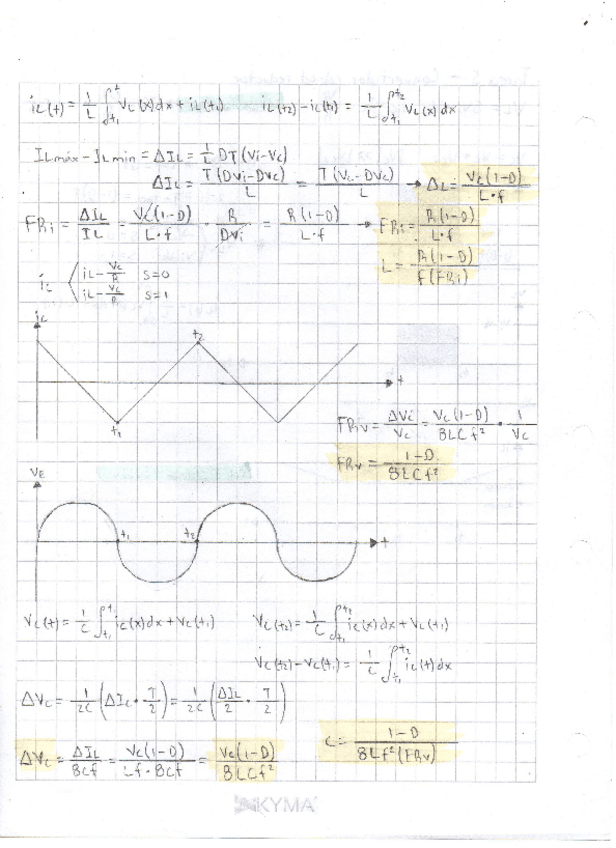 iL(t) = 1/L ∫t₁^t VL(x)dx + iL(t₁)    iL(t₂) - iL(t₁) = 1/L ∫t₁^t₂ VL(x)dx
ILmáx - ILmin = ΔIL = 1/L DT(Vi-Vc)
ΔIL = T(DVi-DVc)/L = T(Vc-DVc)/L → ΔL = Vc(1-D)/L·f
FRi = ΔIL/IL = Vc(1-D)/L·f · R/DVi = R(1-D)/L·f → FRi = R(1-D)/L·f
L = R(1-D)/f(FRi)
ic { iL - Vc/R S=0
iL - Vc/R S=1
ic
t₂
t
t₁
FRiv = ΔVc/Vc = Vc(1-D)/8LCf² · 1/Vc
FRv = 1-D/8LCf²
t₁ t₂ t
Vc(t) = 1/C ∫t₁^t ic(x)dx + Vc(t₁)    Vc(t₂) = 1/C ∫t₁^t₂ ic(x)dx + Vc(t₁)
Vc(t₂) - Vc(t₁) = 1/C ∫t₁^t₂ ic(t)dx
ΔVc = 1/2C (ΔIc · T/2) = 1/2C (ΔIL/2 · T/2)
C = 1-D/8Lf²(FRv)
ΔVc = ΔIL/8Cf = Vc(1-D)/Lf·8Cf = Vc(1-D)/8LCf²
KYMA